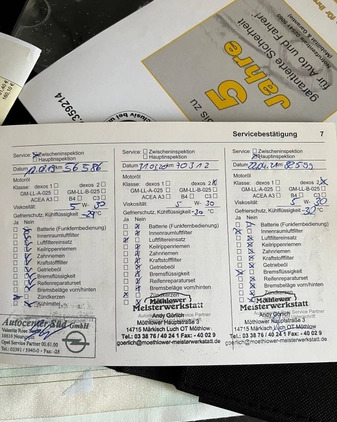 5
Jahre
garantierte Sicherheit
für Auto und Fahrer!
bis zu
Servicebestätigung 7
Service: Zwischeninspektion
Hauptinspektion
Datum 56586
Motoröl
Klasse: dexos 1 dexos 2
GM-LL-A-025 GM-LL-B-025
ACEA A3 B4 C3
Viskosität: 5 W- 30
Gefrierschutz, Kühlflüssigkeit
Ja Nein
Batterie (Funkfernbedienung)
Innenraumluftfilter
Luftfiltereinsatz
Keilrippenriemen
Zahnriemen
Kraftstofffilter
Getriebeöl
Bremsflüssigkeit
Reifenreparaturset
Bremsbeläge vorn/hinten
Zündkerzen
Autocenter Süd GmbH
Opel Service Partner
Service: Zwischeninspektion
Hauptinspektion
Datum 70312
Motoröl
Klasse: dexos 1 dexos 2
GM-LL-A-025 GM-LL-B-025
ACEA A3 B4 C3
Viskosität: 5 W- 30
Gefrierschutz, Kühlflüssigkeit -30 °C
Ja Nein
Batterie (Funkfernbedienung)
Innenraumluftfilter
Luftfiltereinsatz
Keilrippenriemen
Zahnriemen
Kraftstofffilter
Getriebeöl
Bremsflüssigkeit
Reifenreparaturset
Bremsbeläge vorn/hinten
Möthlower
Meisterwerkstatt
Andy Görlich
Möthlower Hauptstraße 3
14715 Märkisch Luch OT Möthlow
Tel.: 03 38 76 / 40 24 1 Fax - 40 02 9
goerlich@moethlower-meisterwerkstatt.de
Service: Zwischeninspektion
Hauptinspektion
Datum 82599
Motoröl
Klasse: dexos 1 dexos 2
GM-LL-A-025 GM-LL-B-025
ACEA A3 B4 C3
Viskosität: 5 W- 30
Gefrierschutz, Kühlflüssigkeit -30 °C
Ja Nein
Batterie (Funkfernbedienung)
Innenraumluftfilter
Luftfiltereinsatz
Keilrippenriemen
Zahnriemen
Kraftstofffilter
Getriebeöl
Bremsflüssigkeit
Reifenreparaturset
Bremsbeläge vorn/hinten
Zündkerzen
Möthlower
Meisterwerkstatt
Andy Görlich
Möthlower Hauptstraße 3
14715 Märkisch Luch OT Möthlow
Tel.: 03 38 76 / 40 24 1 Fax - 40 02 9
goerlich@moethlower-meisterwerkstatt.de